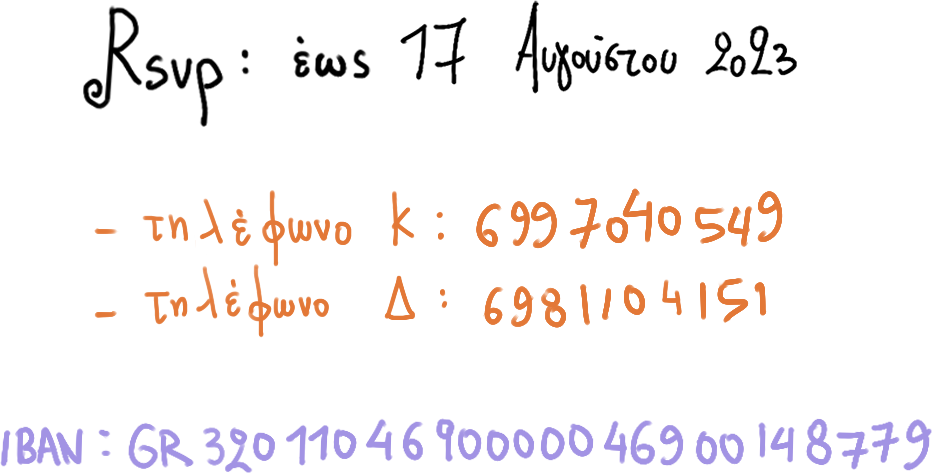 Rsvp: έως 17 Αυγούστου 2023
- τηλέφωνο Κ: 6997040549
- τηλέφωνο Δ: 6981104151
IBAN: GR3201104690000046900148779